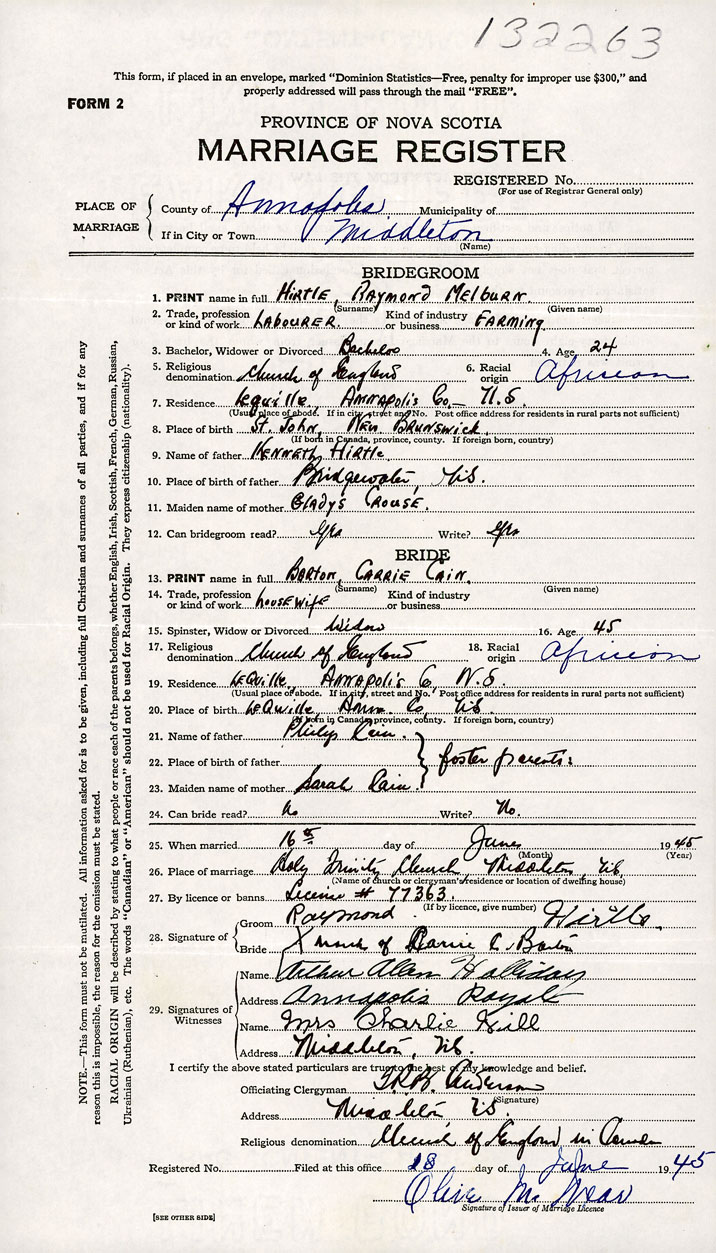 132263
This form, if placed in an envelope, marked “Dominion Statistics—Free, penalty for improper use $300,” and
properly addressed will pass through the mail “FREE”.
FORM 2
PROVINCE OF NOVA SCOTIA
MARRIAGE REGISTER
REGISTERED No.
(For use of Registrar General only)
PLACE OF MARRIAGE
County of Annapolis Municipality of
If in City or Town Middleton
(Name)
BRIDEGROOM
1. PRINT name in full HIRTLE, RAYMOND MELBURN.
(Surname) (Given name)
2. Trade, profession or kind of work LABOURER. Kind of industry or business FARMING
3. Bachelor, Widower or Divorced Bachelor 4. Age 24
5. Religious denomination Church of England 6. Racial origin African
7. Residence Lequille, ANNAPOLIS Co— N.S.
(Usual place of abode. If in city, street and No. Post office address for residents in rural parts not sufficient)
8. Place of birth ST. JOHN, NEW BRUNSWICK.
(If born in Canada, province, county. If foreign born, country)
9. Name of father KENNETH HIRTLE.
10. Place of birth of father Bridgewater, N.S.
11. Maiden name of mother GLADYS CROUSE.
12. Can bridegroom read? Yes Write? Yes
BRIDE
13. PRINT name in full BARTON, CARRIE CAIN.
(Surname) (Given name)
14. Trade, profession or kind of work housewife Kind of industry or business
15. Spinster, Widow or Divorced Widow 16. Age 45
17. Religious denomination Church of England 18. Racial origin African
19. Residence LEQUILLE, ANNAPOLIS Co, N.S.
(Usual place of abode. If in city, street and No. Post office address for residents in rural parts not sufficient)
20. Place of birth LEQuille Ann. Co, N.S.
(If born in Canada, province, county. If foreign born, country)
21. Name of father Philip Cain.
22. Place of birth of father foster parents:
23. Maiden name of mother Sarah Cain.
24. Can bride read? No Write? No.
25. When married 16th day of June 1945
(Month) (Year)
26. Place of marriage Holy Trinity Church, Middleton, N.S.
(Name of church or clergyman's residence or location of dwelling house)
27. By licence or banns License # 77363.
(If by licence, give number)
28. Signature of
Groom Raymond Hirtle.
Bride X mark of Carrie C. Barton
29. Signatures of Witnesses
Name Arthur Allan Halliday
Address Annapolis Royal
Name Mrs Charlie Hill
Address Middleton, N.S.
I certify the above stated particulars are true to the best of my knowledge and belief.
Officiating Clergyman Anderson
(Signature)
Address Middleton N.S.
Religious denomination Church of England in Canada
Registered No. Filed at this office 18 day of June 1945
Olive
Signature of Issuer of Marriage Licence
[SEE OTHER SIDE]
NOTE.—This form must not be mutilated. All information asked for is to be given, including full Christian and surnames of all parties, and if for any
reason this is impossible, the reason for the omission must be stated.
RACIAL ORIGIN will be described by stating to what people or race each of the parents belongs, whether English, Irish, Scottish, French, German, Russian,
Ukrainian (Ruthenian), etc. The words “Canadian” or “American” should not be used for Racial Origin. They express citizenship (nationality).